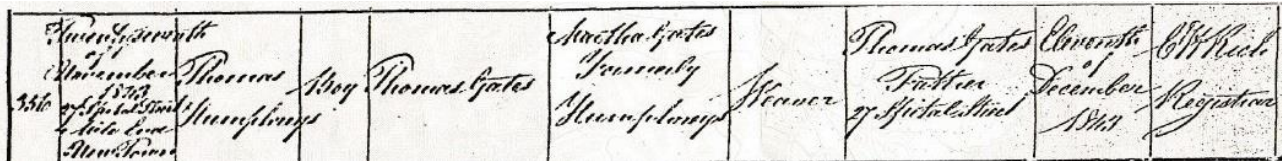 356
Twenty seventh
of
November
1843
27 Spital Street
Mile End
New Town
Thomas
Humphreys
Boy
Thomas Yates
Martha Yates
Formerly
Humphreys
Weaver
Thomas Yates
Father
27 Spital Street
Eleventh
of
December
1843
C W Rich
Registrar